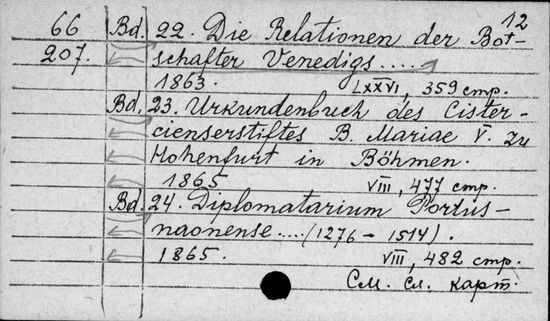 12
66 Bd. 22. Die Relationen der Bot-
207. schafter Venedigs.....
1863. LXXVI, 359 стр.
Bd. 23. Urkundenbuch des Cister-
cienserstiftes B. Mariae V. zu
Hohenfurt in Böhmen.
1865 VIII, 477 стр.
Bd. 24. Diplomatarium Portus-
naonense.....(1276-1514).
1865. VIII, 482 стр.
См. сл. карт.